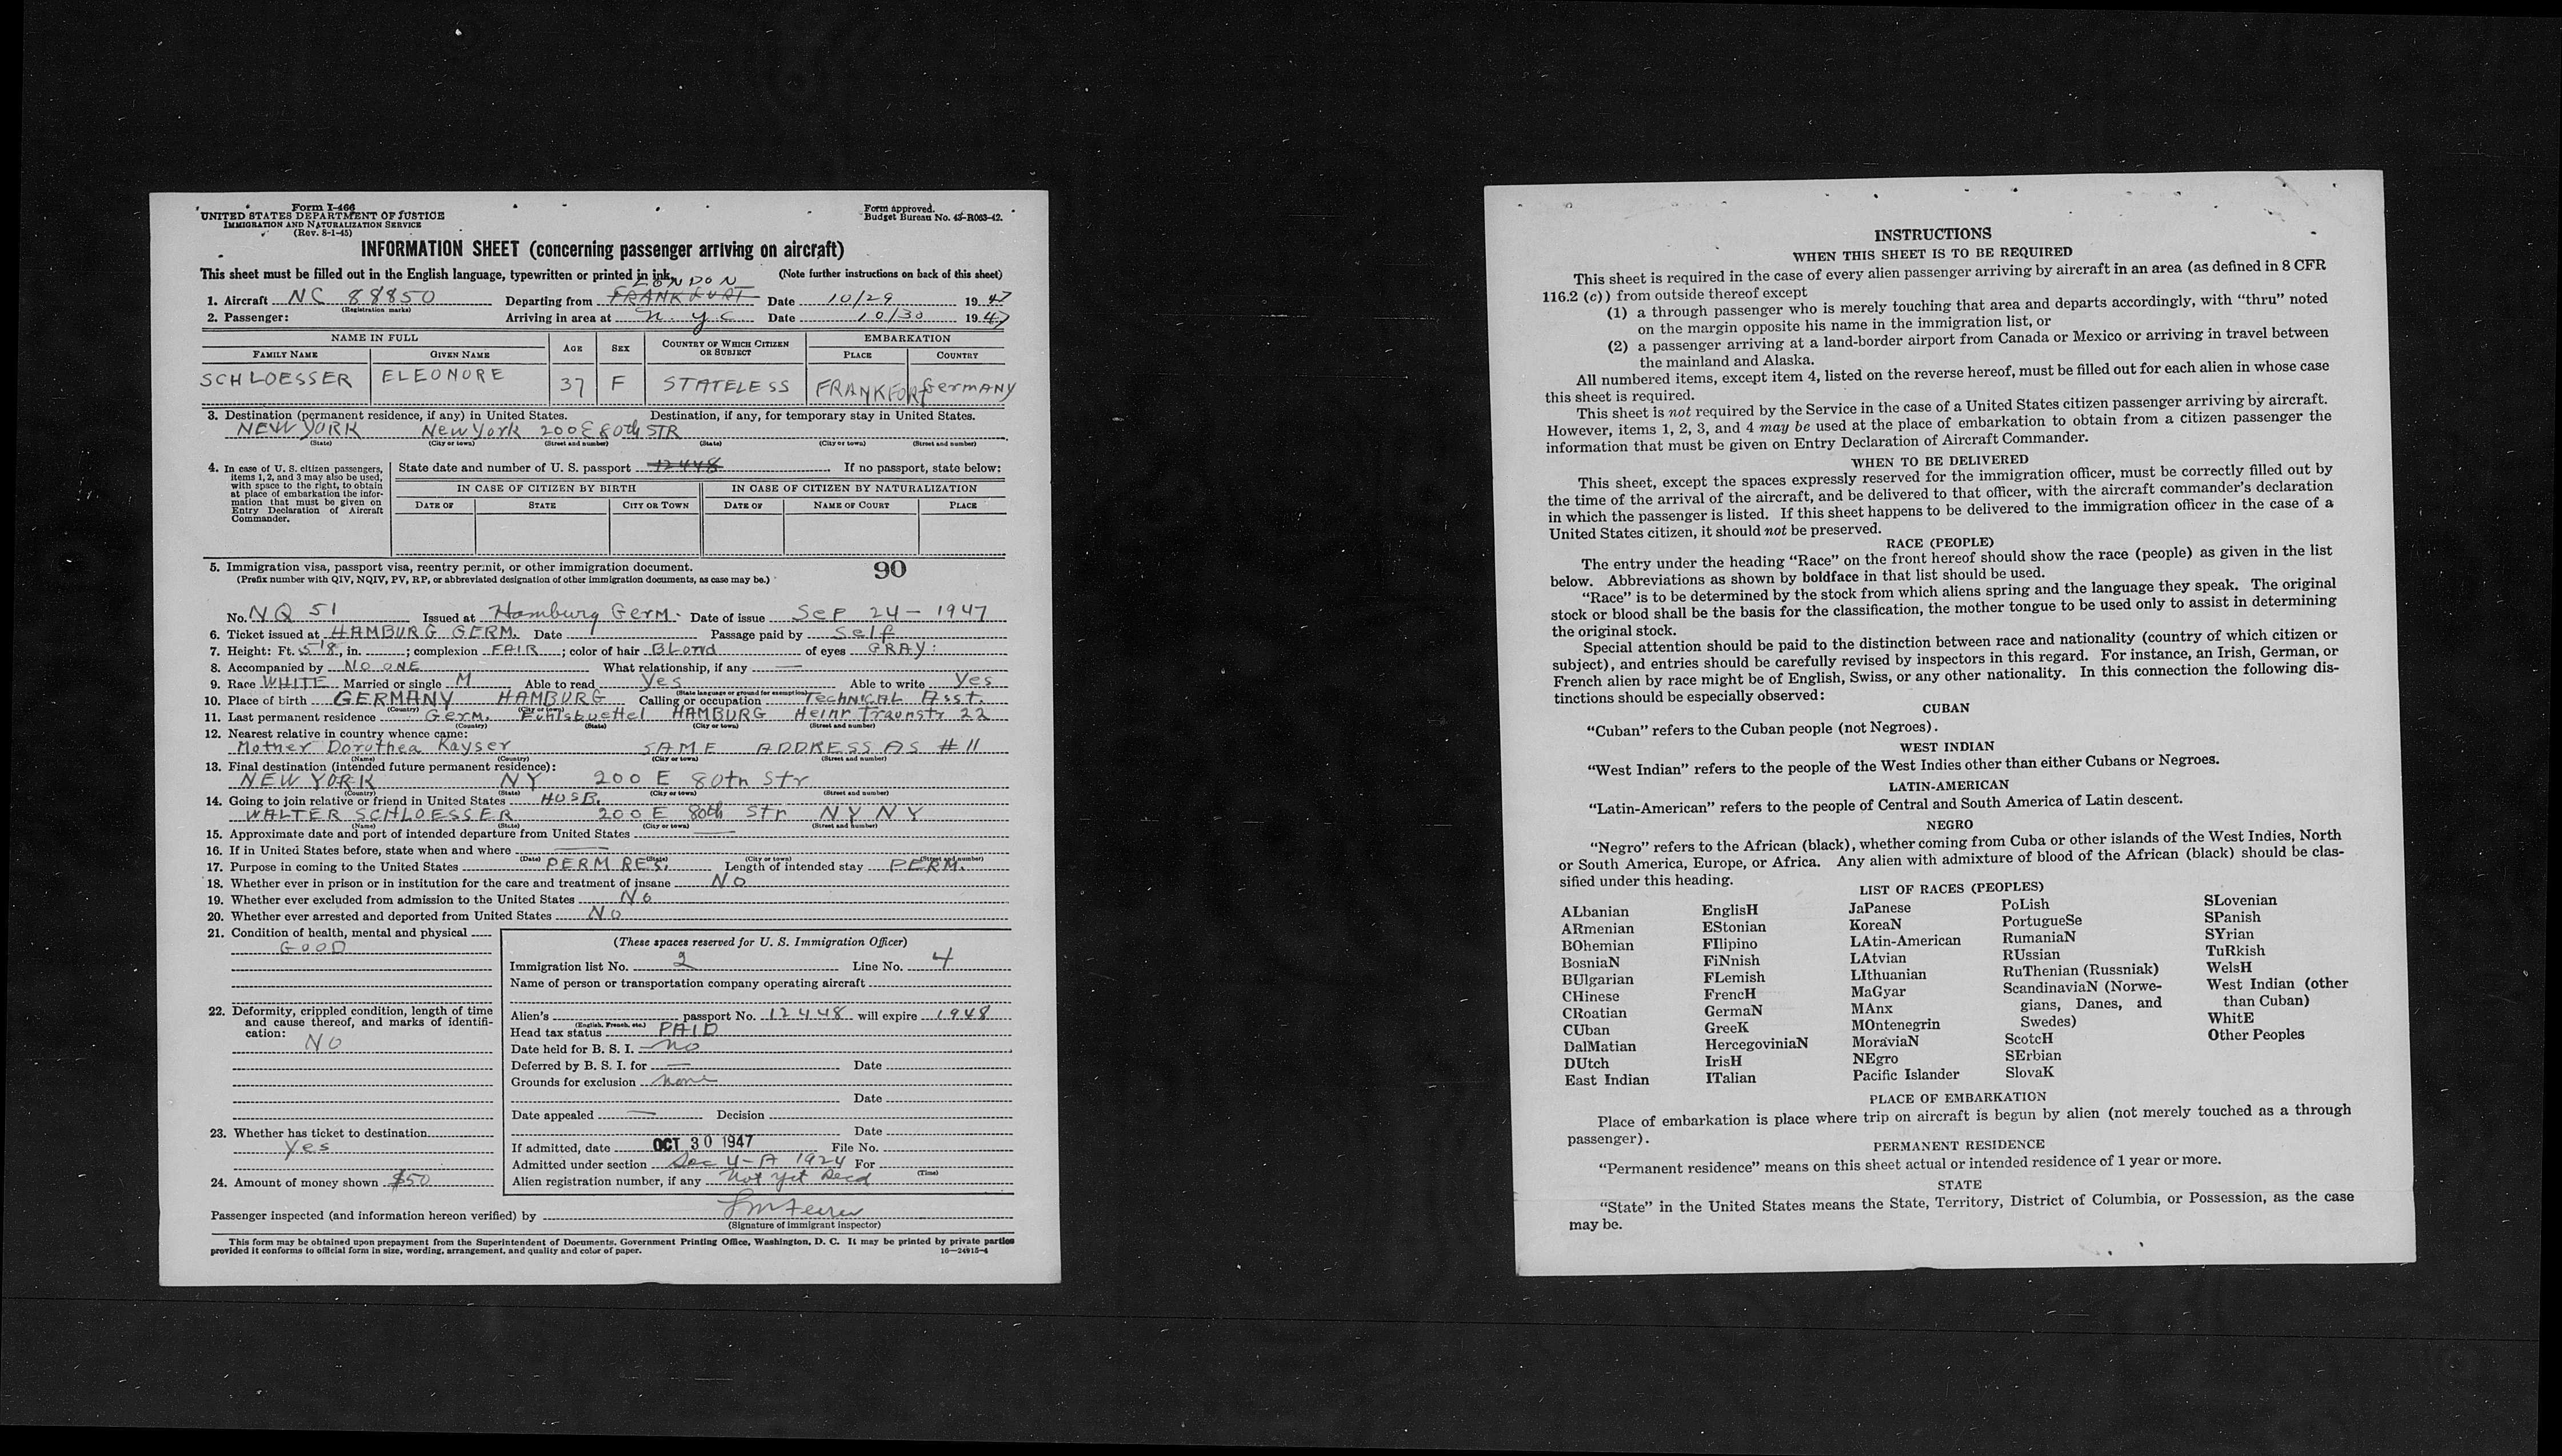 Form I-466
UNITED STATES DEPARTMENT OF JUSTICE
IMMIGRATION AND NATURALIZATION SERVICE
(Rev. 8-1-45)
Form approved.
Budget Bureau No. 43-R063-42.
INFORMATION SHEET (concerning passenger arriving on aircraft)
This sheet must be filled out in the English language, typewritten or printed in ink. (Note further instructions on back of this sheet)
LONDON
1. Aircraft NC 88850 Departing from FRANKFURT Date 10/29 1947
(Registration marks)
2. Passenger: Arriving in area at N. Y C Date 10/30 1947
NAME IN FULL AGE SEX COUNTRY OF WHICH CITIZEN OR SUBJECT EMBARKATION
FAMILY NAME GIVEN NAME PLACE COUNTRY
SCHLOESSER ELEONORE 37 F STATELESS FRANKFORT GERMANY
3. Destination (permanent residence, if any) in United States. Destination, if any, for temporary stay in United States.
NEW YORK New York 200 E 80th STR
(State) (City or town) (Street and number) (State) (City or town) (Street and number)
4. In case of U. S. citizen passengers, items 1, 2, and 3 may also be used, with space to the right, to obtain at place of embarkation the information that must be given on Entry Declaration of Aircraft Commander.
State date and number of U. S. passport 12448 If no passport, state below:
IN CASE OF CITIZEN BY BIRTH IN CASE OF CITIZEN BY NATURALIZATION
DATE OF STATE CITY OR TOWN DATE OF NAME OF COURT PLACE
5. Immigration visa, passport visa, reentry permit, or other immigration document. 90
(Prefix number with QIV, NQIV, PV, RP, or abbreviated designation of other immigration documents, as case may be.)
No. NQ 51 Issued at Hamburg Germ. Date of issue Sep 24 - 1947
6. Ticket issued at HAMBURG GERM. Date Passage paid by Self
7. Height: Ft. 5'8, in. ; complexion FAIR ; color of hair BLond of eyes GRAY:
8. Accompanied by NO ONE What relationship, if any —
9. Race WHITE Married or single M Able to read Yes Able to write Yes
(State language or ground for exemption)
10. Place of birth GERMANY HAMBURG Calling or occupation TECHNICAL Asst.
(Country) (City or town)
11. Last permanent residence Germ. Fuhlsbuettel HAMBURG Heinr Traunstr 22
(Country) (State) (City or town) (Street and number)
12. Nearest relative in country whence came:
Mother Dorothea Kayser SAME ADDRESS AS # 11
(Name) (Country) (City or town) (Street and number)
13. Final destination (intended future permanent residence):
NEW YORK NY 200 E 80th Str
(Country) (State) (City or town) (Street and number)
14. Going to join relative or friend in United States HUSB.
WALTER SCHLOESSER 200 E 80th Str NY NY
(Name) (State) (City or town) (Street and number)
15. Approximate date and port of intended departure from United States —
16. If in United States before, state when and where —
(Date) (State) (City or town) (Street and number)
17. Purpose in coming to the United States PERM RES. Length of intended stay PERM.
18. Whether ever in prison or in institution for the care and treatment of insane NO
19. Whether ever excluded from admission to the United States No
20. Whether ever arrested and deported from United States No
21. Condition of health, mental and physical
GOOD
22. Deformity, crippled condition, length of time and cause thereof, and marks of identification:
NO
23. Whether has ticket to destination
Yes
24. Amount of money shown $50
(These spaces reserved for U. S. Immigration Officer)
Immigration list No. 2 Line No. 4
Name of person or transportation company operating aircraft
Alien's passport No. 12448 will expire 1948
(English, French, etc.)
Head tax status PAID
Date held for B. S. I. no
Deferred by B. S. I. for — Date
Grounds for exclusion none
Date
Date appealed — Decision
Date
If admitted, date OCT 30 1947 File No.
Admitted under section Sec 4-A 1924 For
(Time)
Alien registration number, if any Not yet Recd
Passenger inspected (and information hereon verified) by
(Signature of immigrant inspector)
This form may be obtained upon prepayment from the Superintendent of Documents, Government Printing Office, Washington, D. C. It may be printed by private parties
provided it conforms to official form in size, wording, arrangement, and quality and color of paper. 16—24915-4
INSTRUCTIONS
WHEN THIS SHEET IS TO BE REQUIRED
This sheet is required in the case of every alien passenger arriving by aircraft in an area (as defined in 8 CFR
116.2 (c)) from outside thereof except
(1) a through passenger who is merely touching that area and departs accordingly, with "thru" noted
on the margin opposite his name in the immigration list, or
(2) a passenger arriving at a land-border airport from Canada or Mexico or arriving in travel between
the mainland and Alaska.
All numbered items, except item 4, listed on the reverse hereof, must be filled out for each alien in whose case
this sheet is required.
This sheet is not required by the Service in the case of a United States citizen passenger arriving by aircraft.
However, items 1, 2, 3, and 4 may be used at the place of embarkation to obtain from a citizen passenger the
information that must be given on Entry Declaration of Aircraft Commander.
WHEN TO BE DELIVERED
This sheet, except the spaces expressly reserved for the immigration officer, must be correctly filled out by
the time of the arrival of the aircraft, and be delivered to that officer, with the aircraft commander's declaration
in which the passenger is listed. If this sheet happens to be delivered to the immigration officer in the case of a
United States citizen, it should not be preserved.
RACE (PEOPLE)
The entry under the heading "Race" on the front hereof should show the race (people) as given in the list
below. Abbreviations as shown by boldface in that list should be used.
"Race" is to be determined by the stock from which aliens spring and the language they speak. The original
stock or blood shall be the basis for the classification, the mother tongue to be used only to assist in determining
the original stock.
Special attention should be paid to the distinction between race and nationality (country of which citizen or
subject), and entries should be carefully revised by inspectors in this regard. For instance, an Irish, German, or
French alien by race might be of English, Swiss, or any other nationality. In this connection the following dis-
tinctions should be especially observed:
CUBAN
"Cuban" refers to the Cuban people (not Negroes).
WEST INDIAN
"West Indian" refers to the people of the West Indies other than either Cubans or Negroes.
LATIN-AMERICAN
"Latin-American" refers to the people of Central and South America of Latin descent.
NEGRO
"Negro" refers to the African (black), whether coming from Cuba or other islands of the West Indies, North
or South America, Europe, or Africa. Any alien with admixture of blood of the African (black) should be clas-
sified under this heading.
LIST OF RACES (PEOPLES)
ALbanian
ARmenian
BOhemian
BosniaN
BUlgarian
CHinese
CRoatian
CUban
DalMatian
DUtch
East Indian
EnglisH
EStonian
FIlipino
FiNnish
FLemish
FrencH
GermaN
GreeK
HercegoviniaN
IrisH
ITalian
JaPanese
KoreaN
LAtin-American
LAtvian
LIthuanian
MaGyar
MAnx
MOntenegrin
MoraviaN
NEgro
Pacific Islander
PoLish
PortugueSe
RumaniaN
RUssian
RuThenian (Russniak)
ScandinaviaN (Norwe-
gians, Danes, and
Swedes)
ScotcH
SErbian
SlovaK
SLovenian
SPanish
SYrian
TuRkish
WelsH
West Indian (other
than Cuban)
WhitE
Other Peoples
PLACE OF EMBARKATION
Place of embarkation is place where trip on aircraft is begun by alien (not merely touched as a through
passenger).
PERMANENT RESIDENCE
"Permanent residence" means on this sheet actual or intended residence of 1 year or more.
STATE
"State" in the United States means the State, Territory, District of Columbia, or Possession, as the case
may be.